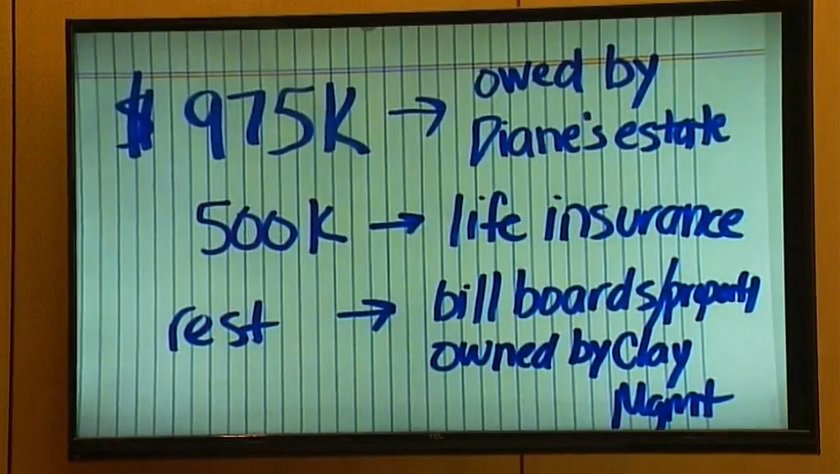 $ 975K → owed by
Diane's estate
500K → life insurance
rest → bill boards/property
owned by Clay
Mgmt
TCL